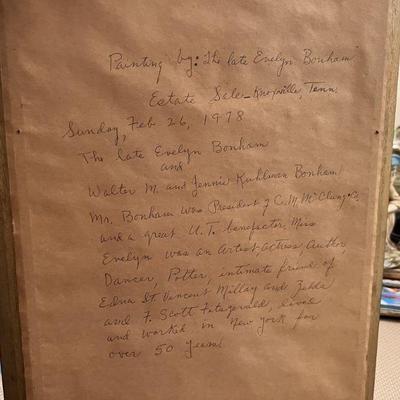 Painting by: The late Evelyn Bonham
Estate Sale - Knoxville, Tenn.
Sunday, Feb 26, 1978
The late Evelyn Bonham
and
Walter M. and Jennie Kuhlman Bonham
Mr. Bonham was President of C. M. McClung & Co.
and a great U.T. benefactor. Miss
Evelyn was an Artist, Actress, Author,
Dancer, Potter, intimate friend of
Edna St Vincent Millay and Zelda
and F. Scott Fitzgerald, lived
and worked in New York for
over 50 years